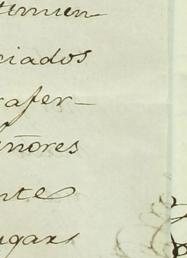 timien
ciados
rafer-
eñores
nte
ugar